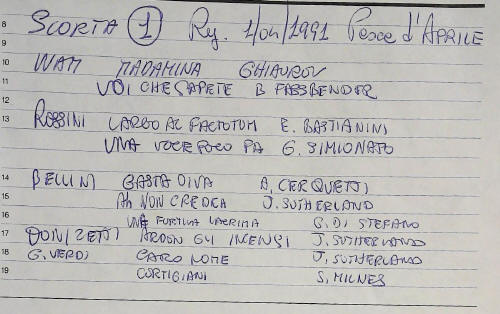 8 SCORTA 1 Rg. 1/04/1991 Pesce d'APRILE
9
10 WAM MADAMINA GHIAUROV
11 VOI CHE SAPETE B FASSBENDER
12
13 ROSSINI LARGO AL FACTOTUM E. BASTIANINI
UNA VOCE POCO FA G. SIMIONATO
14 BELLINI CASTA DIVA A. CERQUETTI
15 Ah NON CREDEA J. SUTHERLAND
16 UNA FURTIVA LACRIMA G. DI STEFANO
17 DONIZETTI ARDON GLI INCENSI J. SUTHERLAND
18 G. VERDI CARO NOME J. SUTHERLAND
19 CORTIGIANI S. MILNES